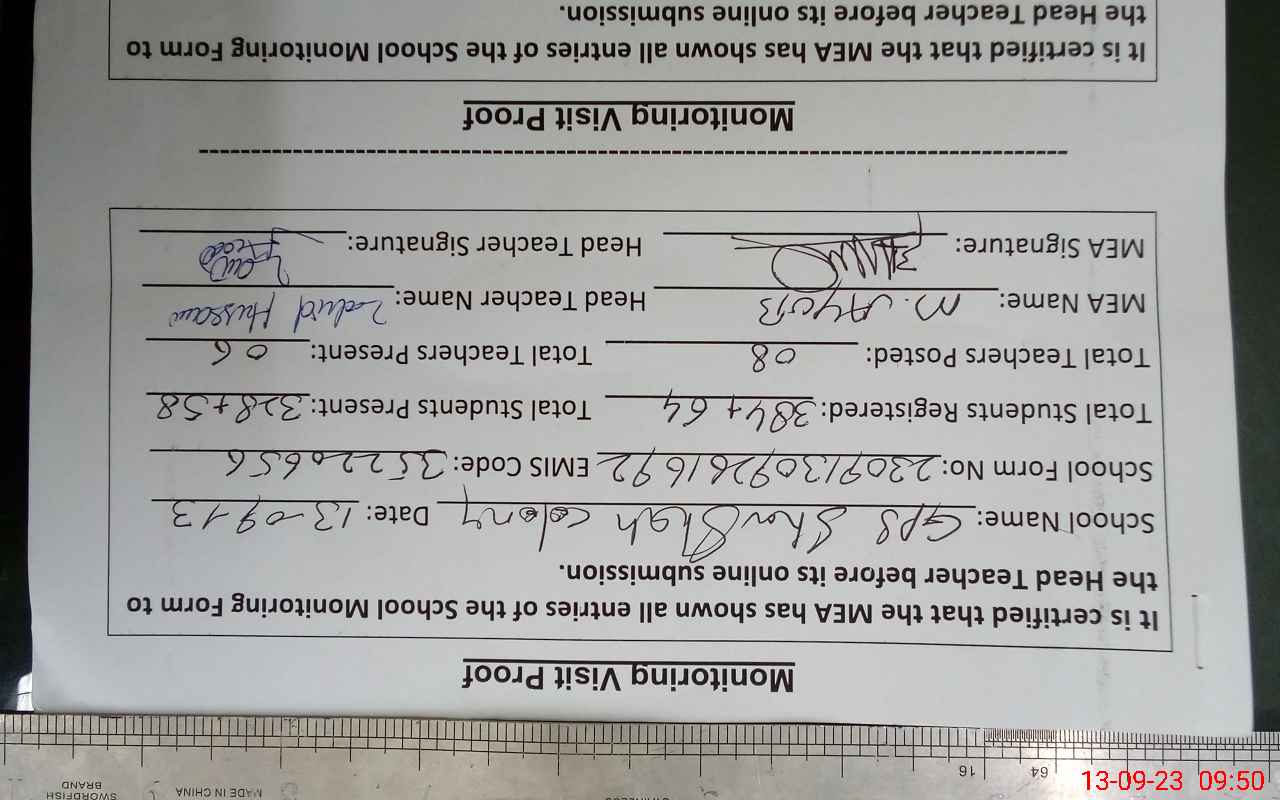 Monitoring Visit Proof
It is certified that the MEA has shown all entries of the School Monitoring Form to
the Head Teacher before its online submission.
School Name: GPS Sher Shah colony Date: 13-09-13
School Form No: 23091309261692 EMIS Code: 35220656
Total Students Registered: 384+64 Total Students Present: 328+58
Total Teachers Posted: 08 Total Teachers Present: 06
MEA Name: M. AYUB Head Teacher Name: Hussain
MEA Signature: Head Teacher Signature:
Monitoring Visit Proof
It is certified that the MEA has shown all entries of the School Monitoring Form to
the Head Teacher before its online submission.
SWORDFISH
BRAND
MADE IN CHINA
16
64
13-09-23 09:50